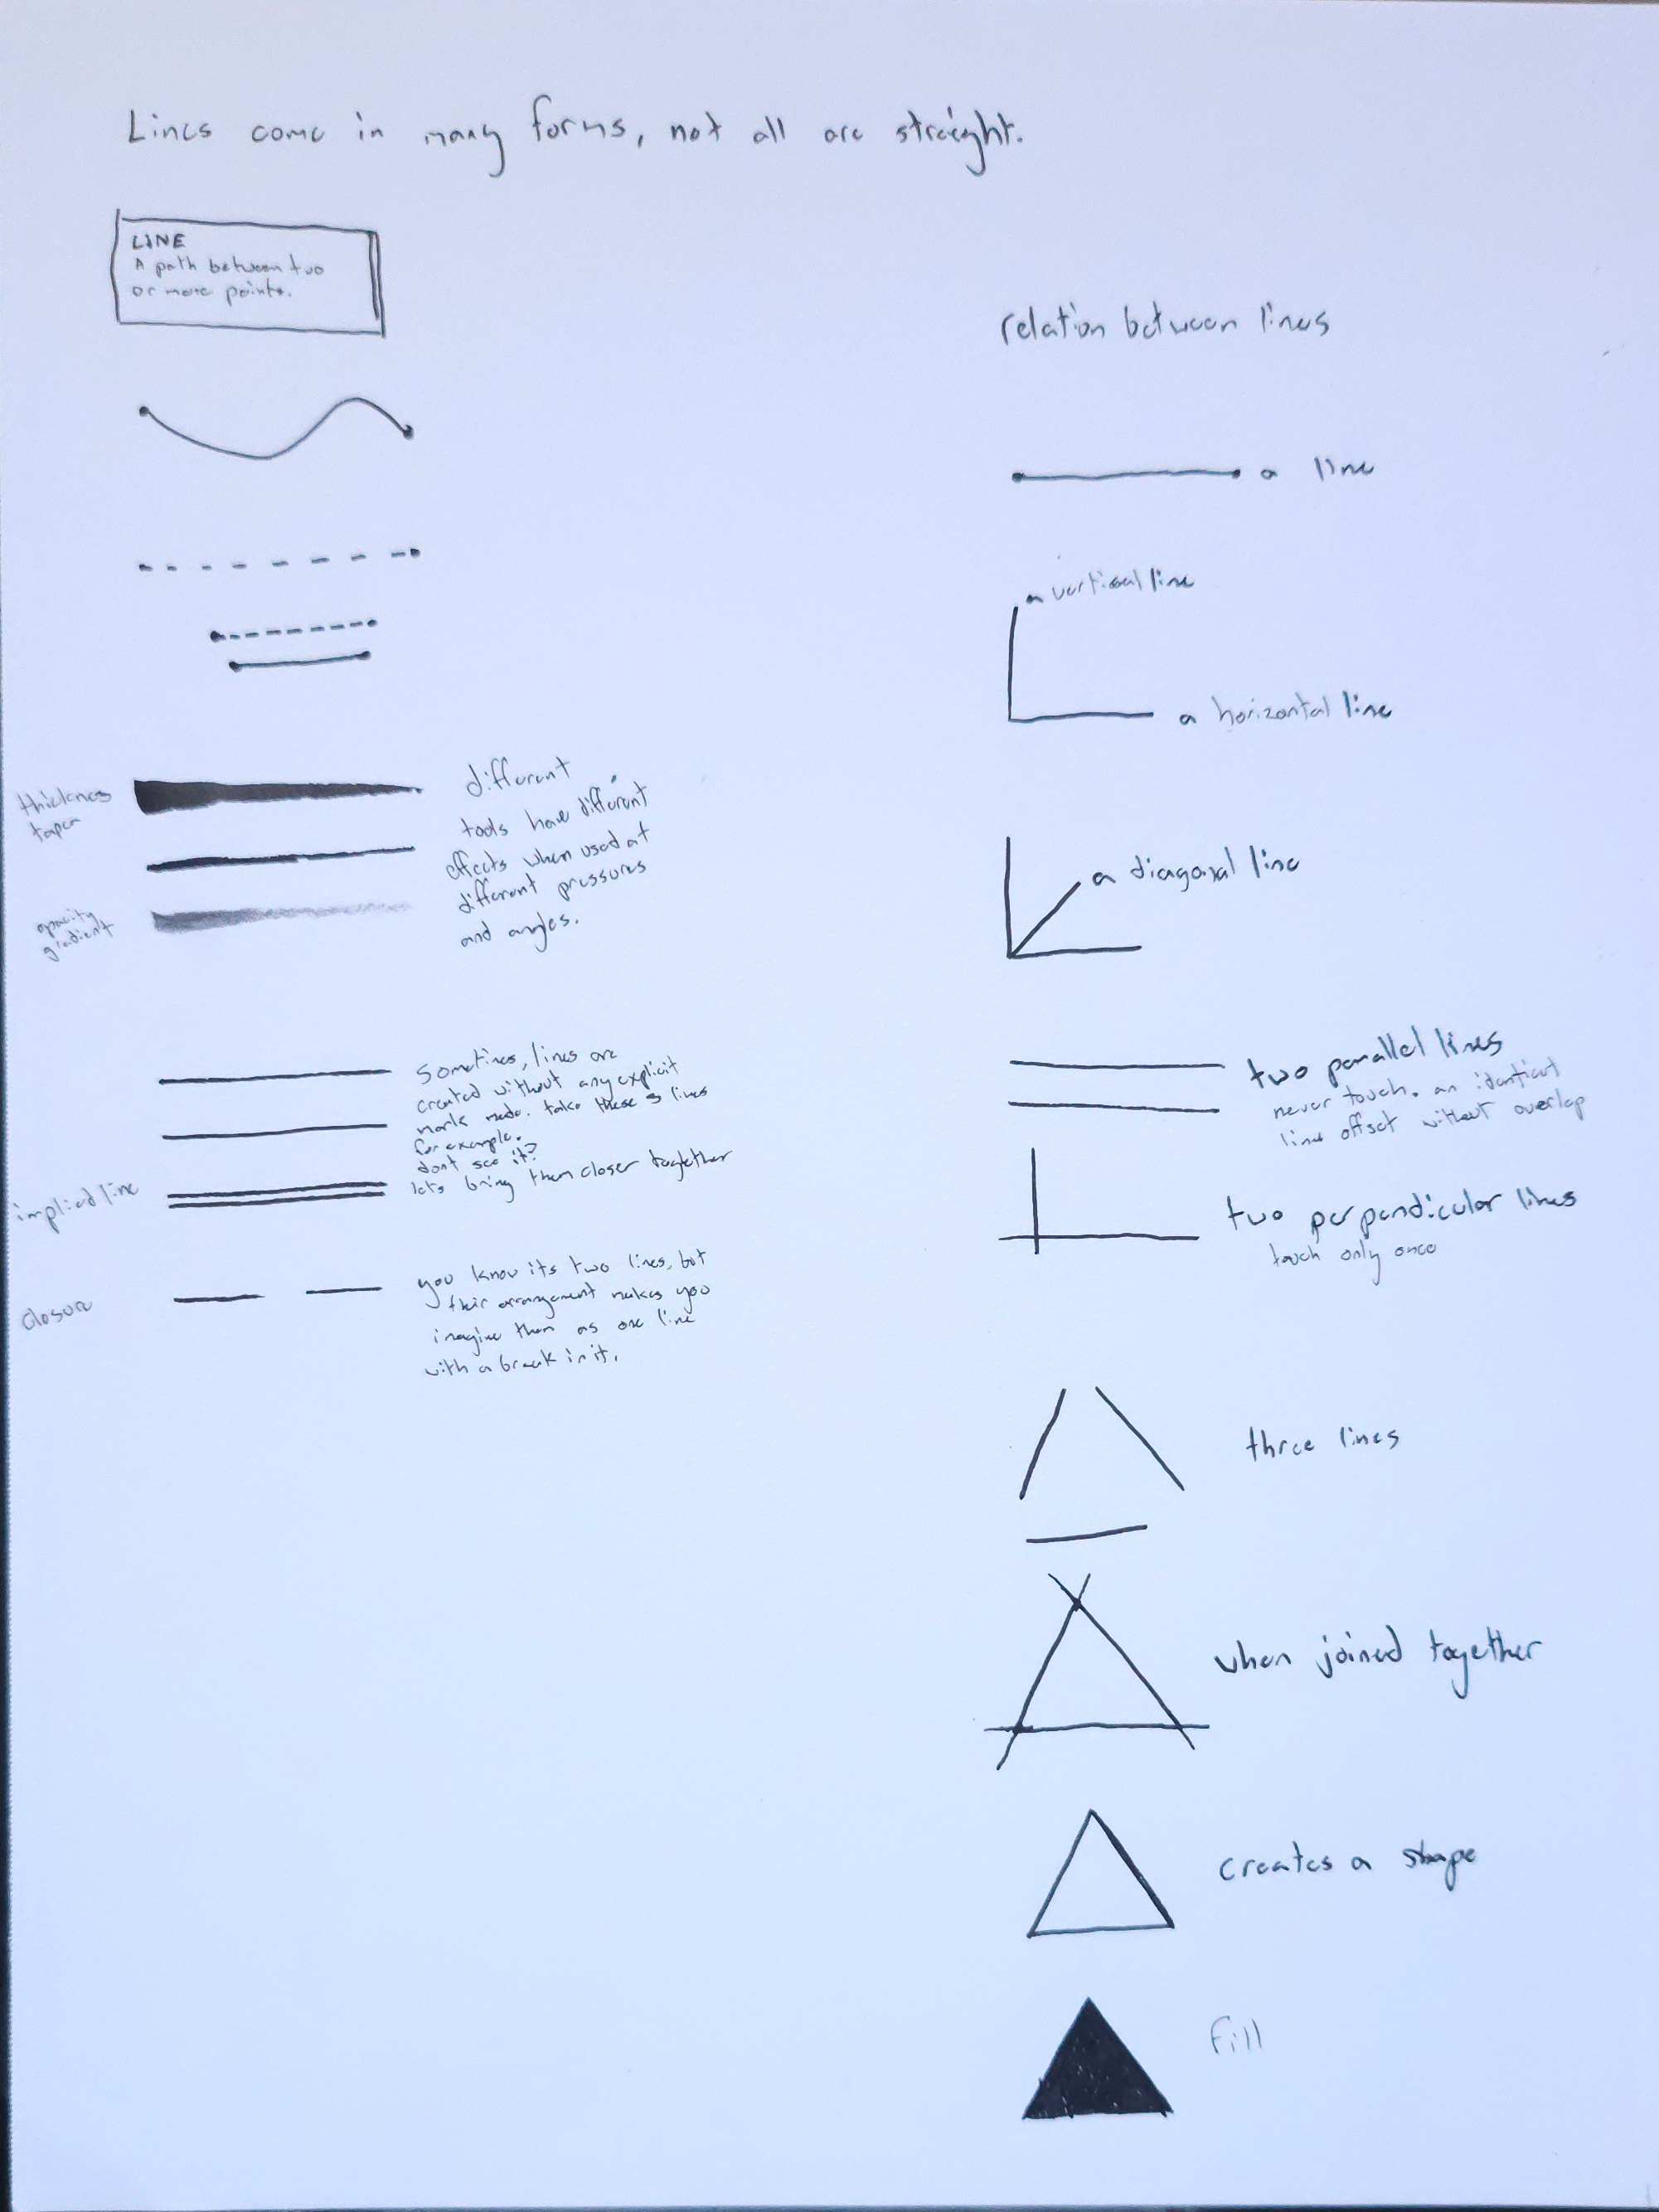 Lines come in many forms, not all are straight.
LINE
A path between two
or more points.
thickness
taper
different
tools have different
effects when used at
different pressures
and angles.
opacity
gradient
Sometimes, lines are
created without any explicit
mark made. take these 3 lines
for example.
dont see it?
lets bring them closer together
implied line
closure
you know its two lines, but
their arrangement makes you
imagine them as one line
with a break in it.
relation between lines
a line
a vertical line
a horizontal line
a diagonal line
two parallel lines
never touch. an identical
line offset without overlap
two perpendicular lines
touch only once
three lines
when joined together
creates a shape
fill